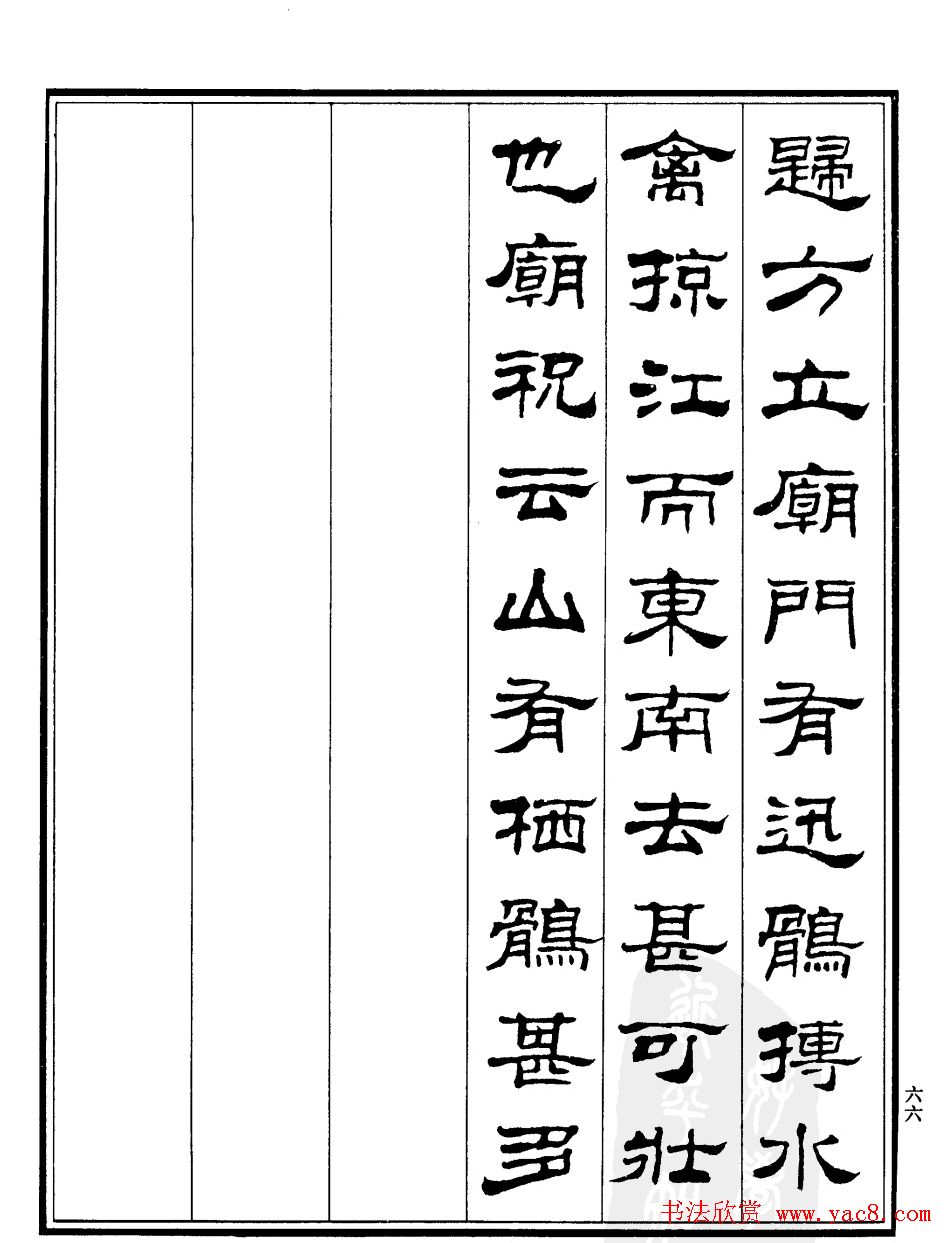 歸方立廟門有迅鶻搏水
禽掠江而東南去甚可壯
也廟祝云山有栖鶻甚多
六六
书法欣赏 www.yac8.com